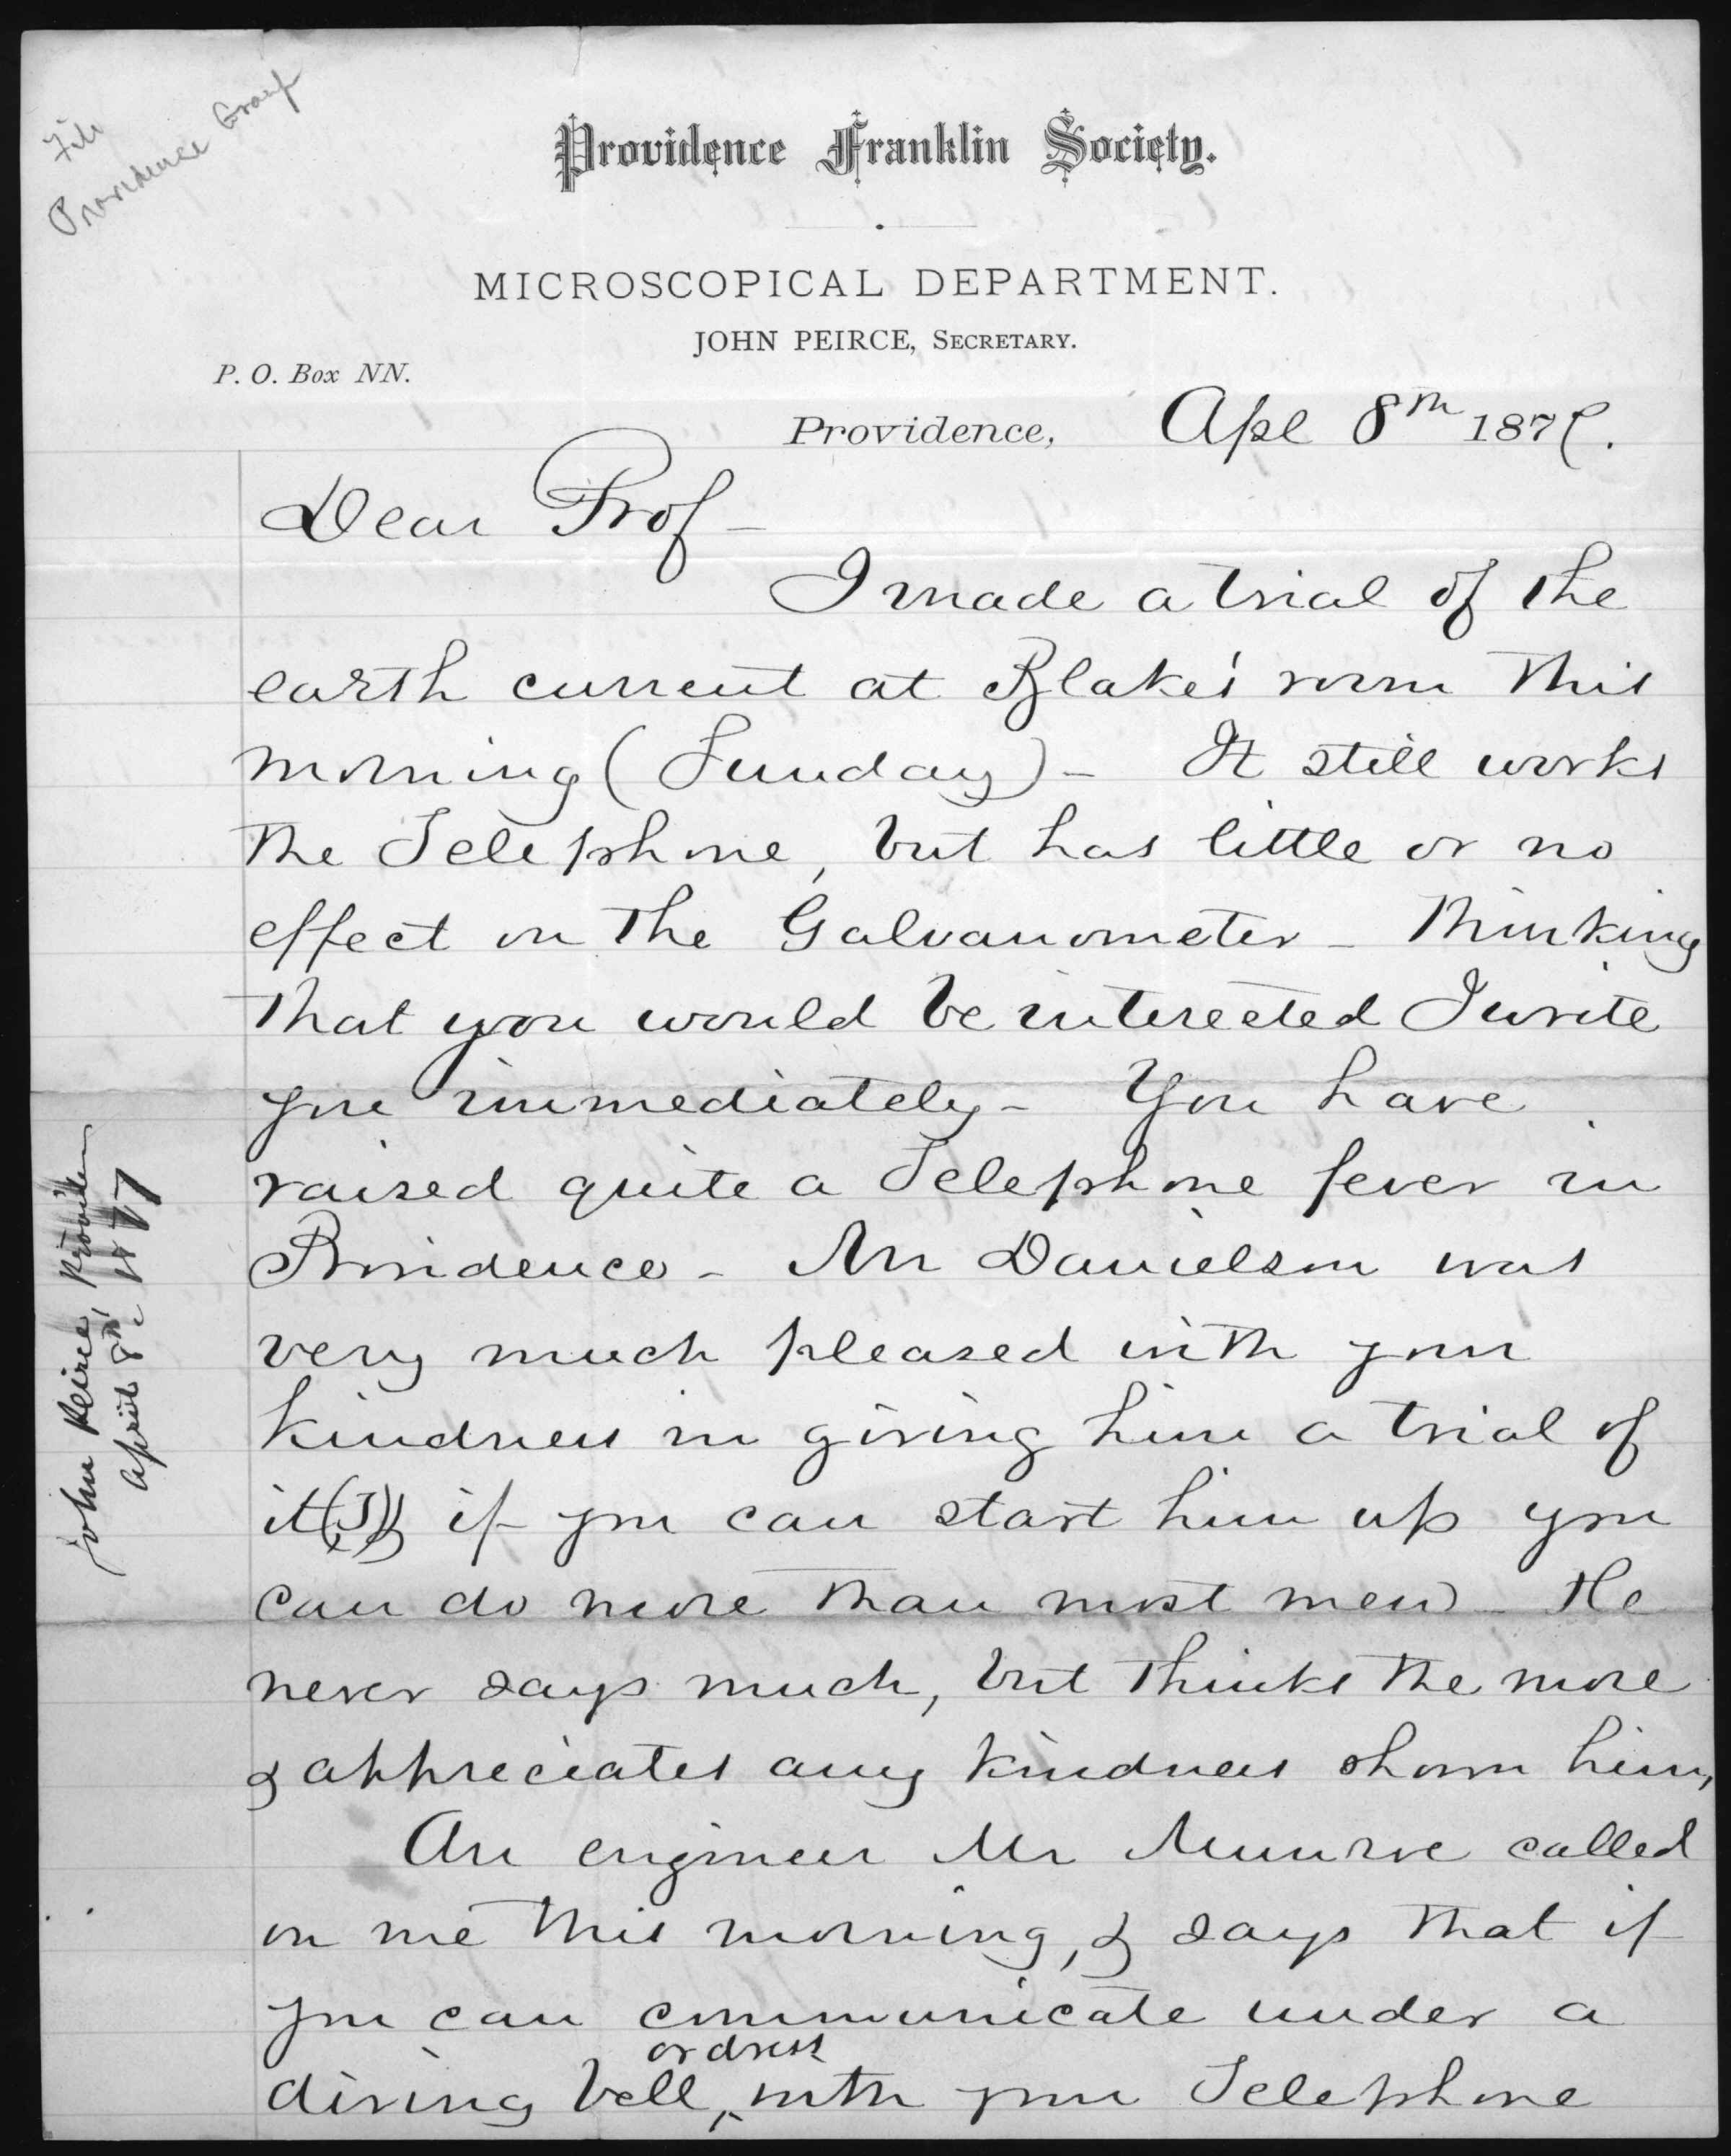 File
Providence Group
Providence Franklin Society.
MICROSCOPICAL DEPARTMENT.
JOHN PEIRCE, SECRETARY.
P. O. Box NN.
Providence, Apl 8th 1877.
Dear Prof-
I made a trial of the
earth current at Blake's room this
morning (Sunday) - It still works
the Telephone, but has little or no
effect on the Galvanometer - Thinking
that you would be interested I write
you immediately - You have
raised quite a Telephone fever in
Providence - Mr Danielson was
very much pleased with your
kindness in giving him a trial of
it (T) & if you can start him up you
can do more than most men - He
never says much, but thinks the more
& appreciates any kindness shown him,
An engineer Mr Munroe called
on me this morning, & says that if
you can communicate under a
or dress
diving bell, with your Telephone
John Peirce, Providen
April 8th, 1877